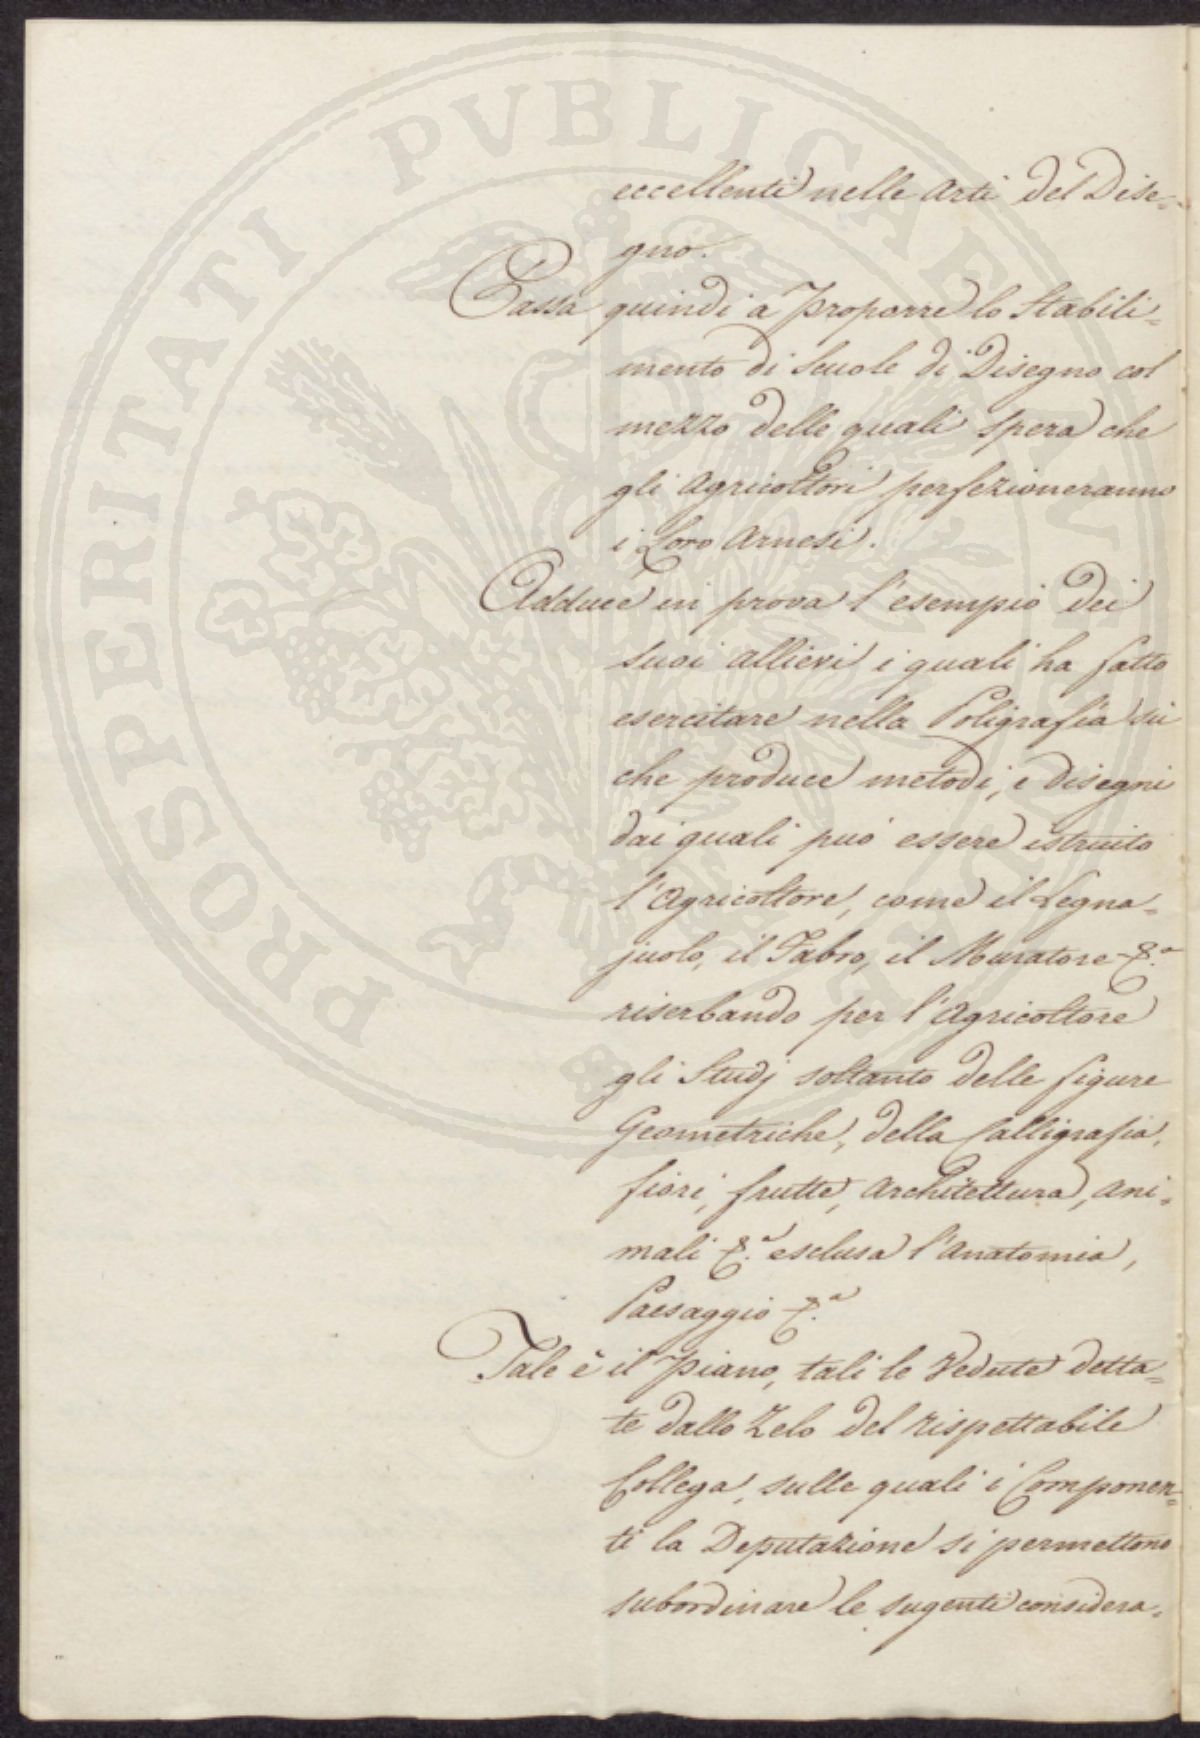 PROSPERITATI PVBLICAE AVGENDAE
eccellenti nelle Arti del Dise=
gno.
Passa quindi a proporre lo Stabili=
mento di Scuole di Disegno col
mezzo delle quali spera che
gli Agricoltori perfezioneranno
i Loro Arnesi.
Adduce in prova l'esempio dei
suoi allievi i quali ha fatto
esercitare nella Poligrafia su
che produce metodi, e disegni
dai quali può essere istruito
l'Agricoltore, come il Legna=
juolo, il Fabro, il Muratore &.a
riserbando per l'Agricoltore
gli Studj soltanto delle figure
Geometriche, della Calligrafia,
fiori, frutte, Architettura, Ani=
mali &.a esclusa l'Anatomia,
Paesaggio &.a
Tale è il piano, tali le Vedute detta=
te dallo Zelo del rispettabile
Collega, sulle quali i Componen=
ti la Deputazione si permettono
subordinare le sugenti considera=